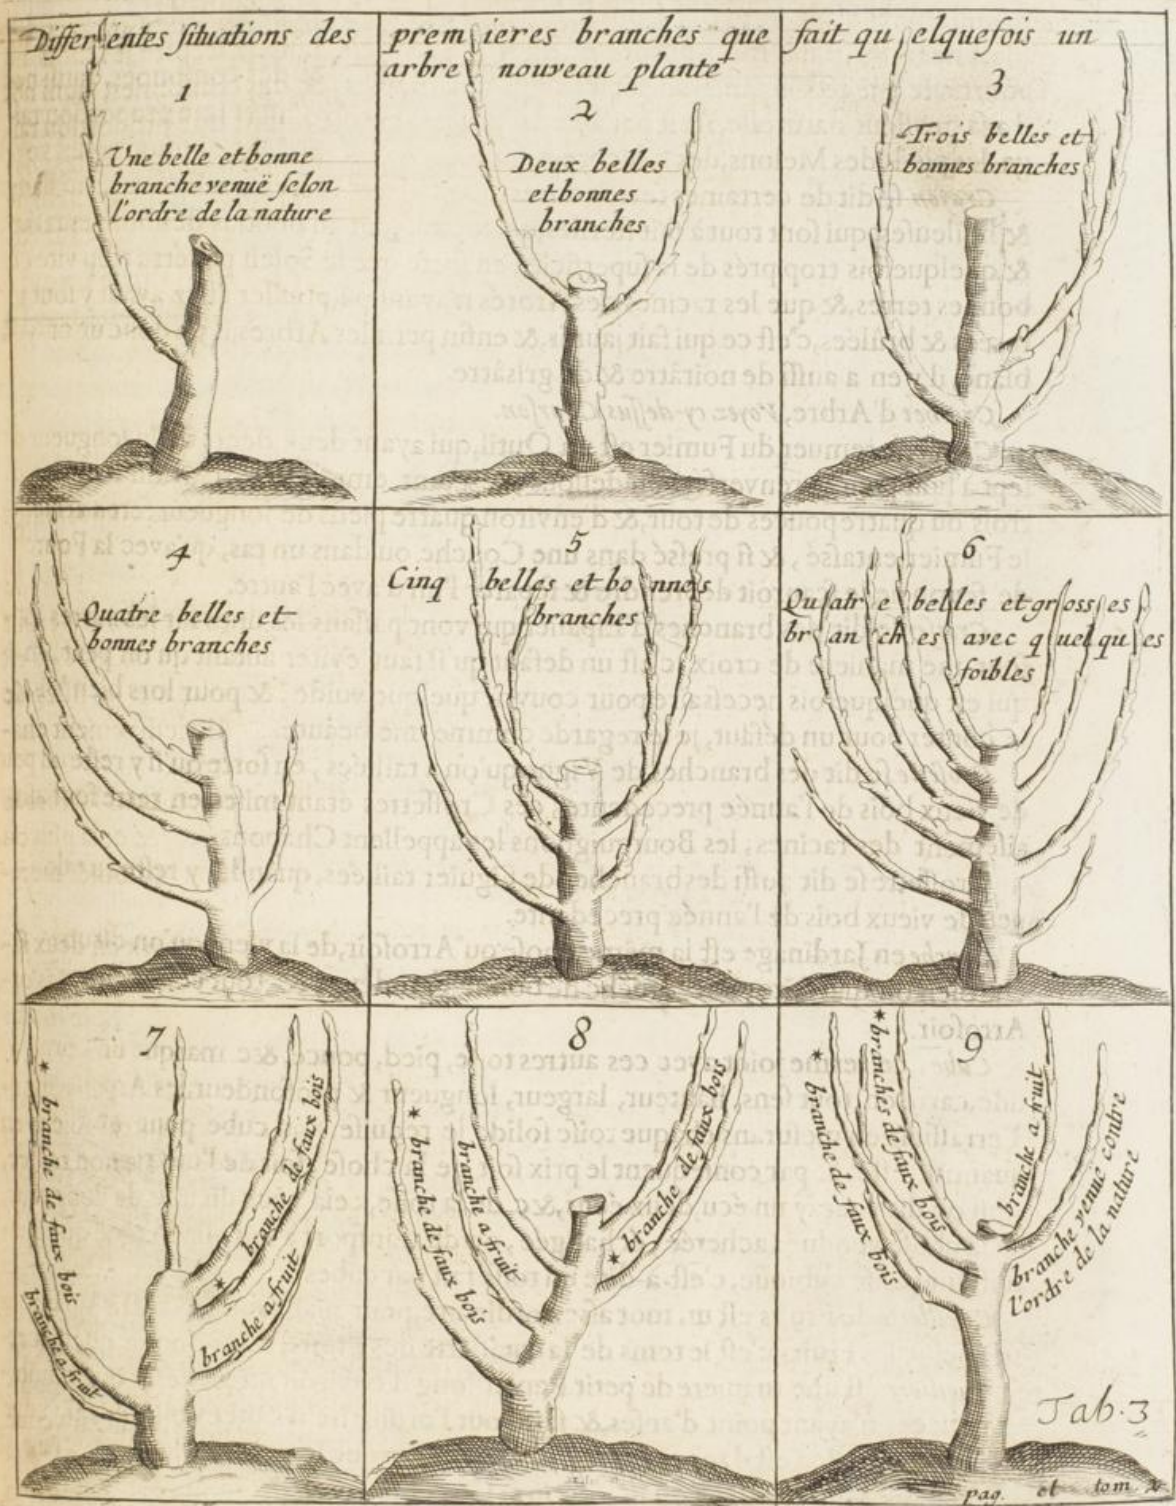 Differentes situations des premieres branches que fait quelquefois un
arbre nouveau planté
1
Une belle et bonne
branche venuë selon
l'ordre de la nature
2
Deux belles
et bonnes
branches
3
Trois belles et
bonnes branches
4
Quatre belles et
bonnes branches
5
Cinq belles et bonnes
branches
6
Quatre belles et grosses
branches avec quelques
foibles
7
* branche de faux bois
branche a fruit
branche de faux bois *
branche a fruit
8
* branche de faux bois
branche a fruit
* branche de faux bois
9
* branche de faux bois
* branches de faux bois
branche a fruit
branche venuë contre
l'ordre de la nature
Tab. 3
pag. et tom